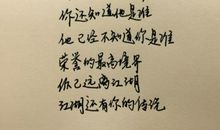 你还知道他是谁
他已经不知道你是谁
荣誉的最高境界
你已远离江湖
江湖还有你的传说